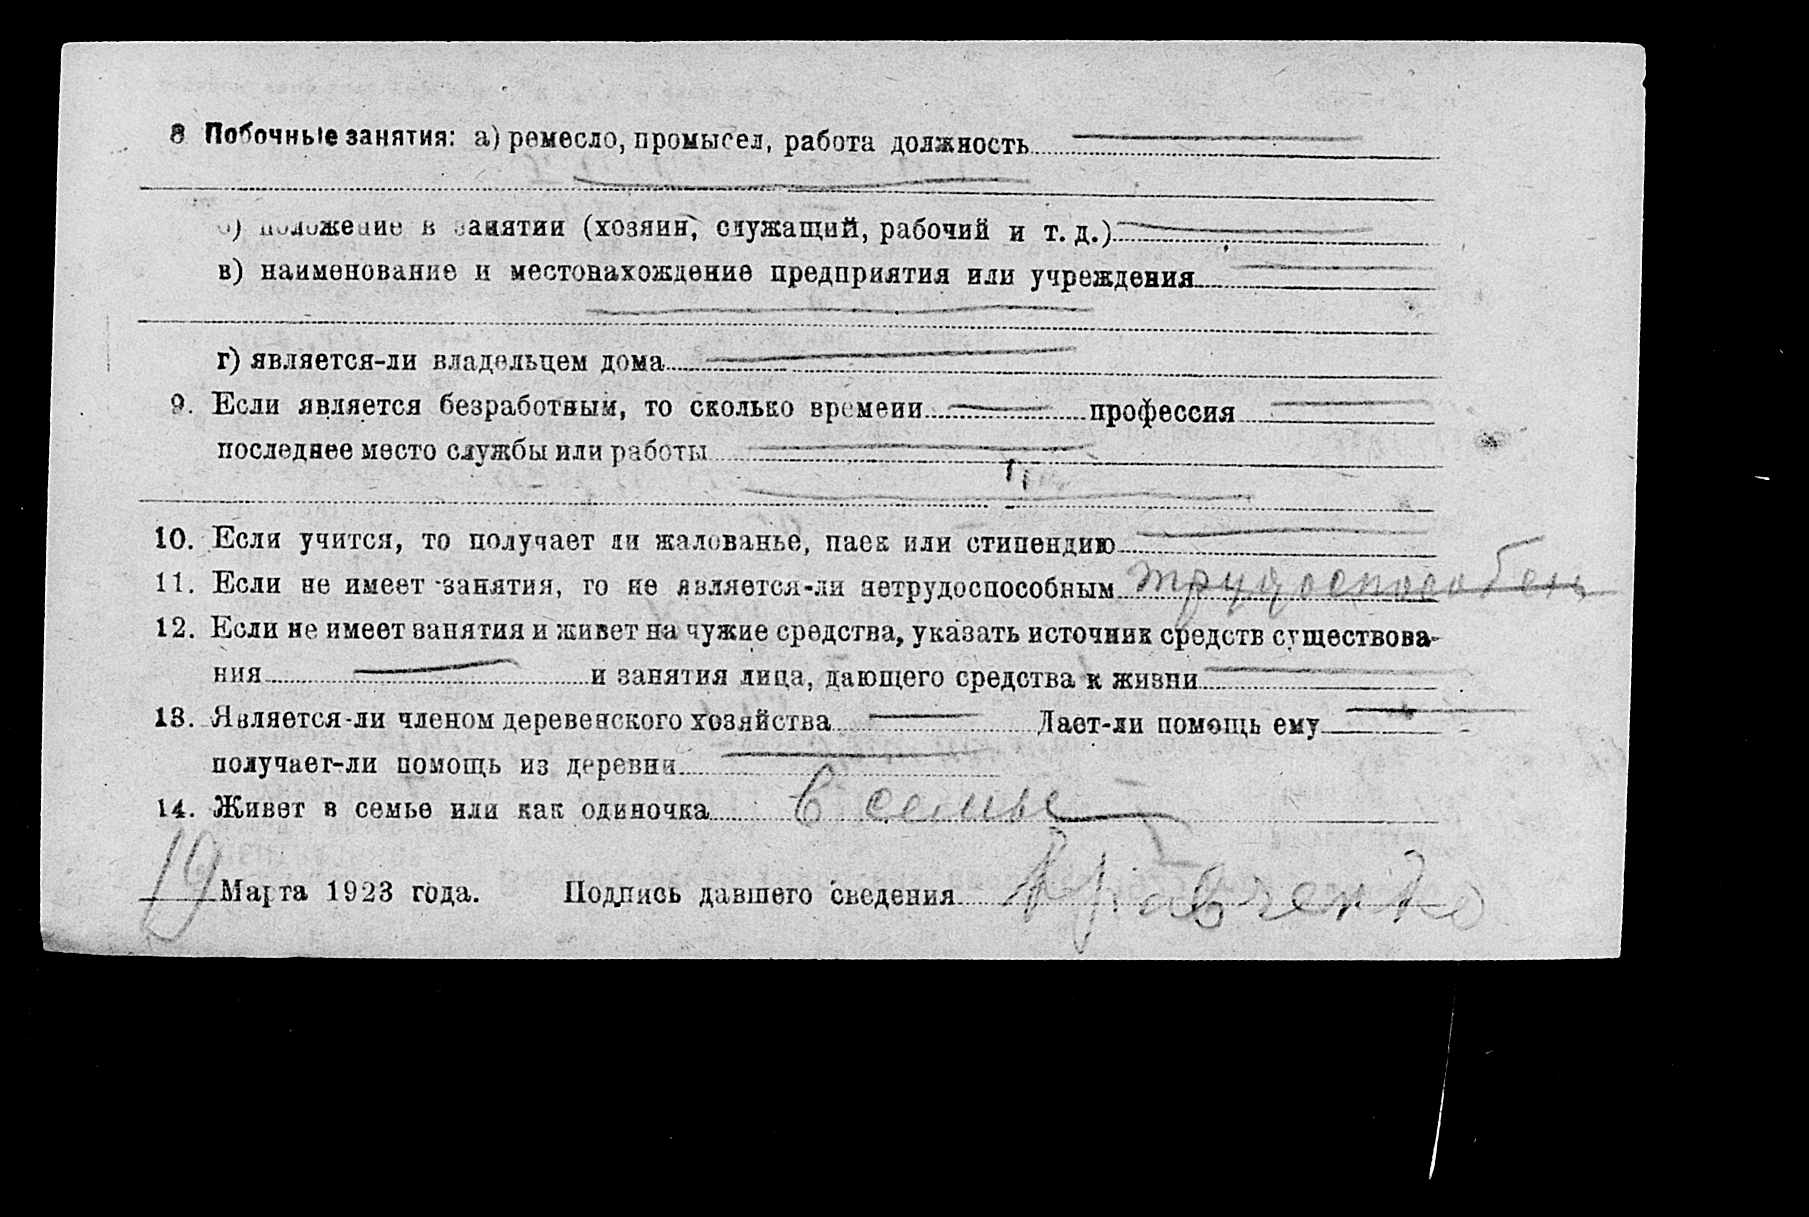 8 Побочные занятия: а) ремесло, промысел, работа должность
б) положение в занятии (хозяин, служащий, рабочий и т. д.)
в) наименование и местонахождение предприятия или учреждения
г) является-ли владельцем дома
9. Если является безработным, то сколько времени профессия
последнее место службы или работы
10. Если учится, то получает ли жалованье, паек или стипендию
11. Если не имеет занятия, то не является-ли нетрудоспособным трудоспособен
12. Если не имеет занятия и живет на чужие средства, указать источник средств существова-
ния и занятия лица, дающего средства к жизни
13. Является-ли членом деревенского хозяйства Дает-ли помощь ему
получает-ли помощь из деревни
14. Живет в семье или как одиночка в семье
19 Марта 1923 года. Подпись давшего сведения Кравченко